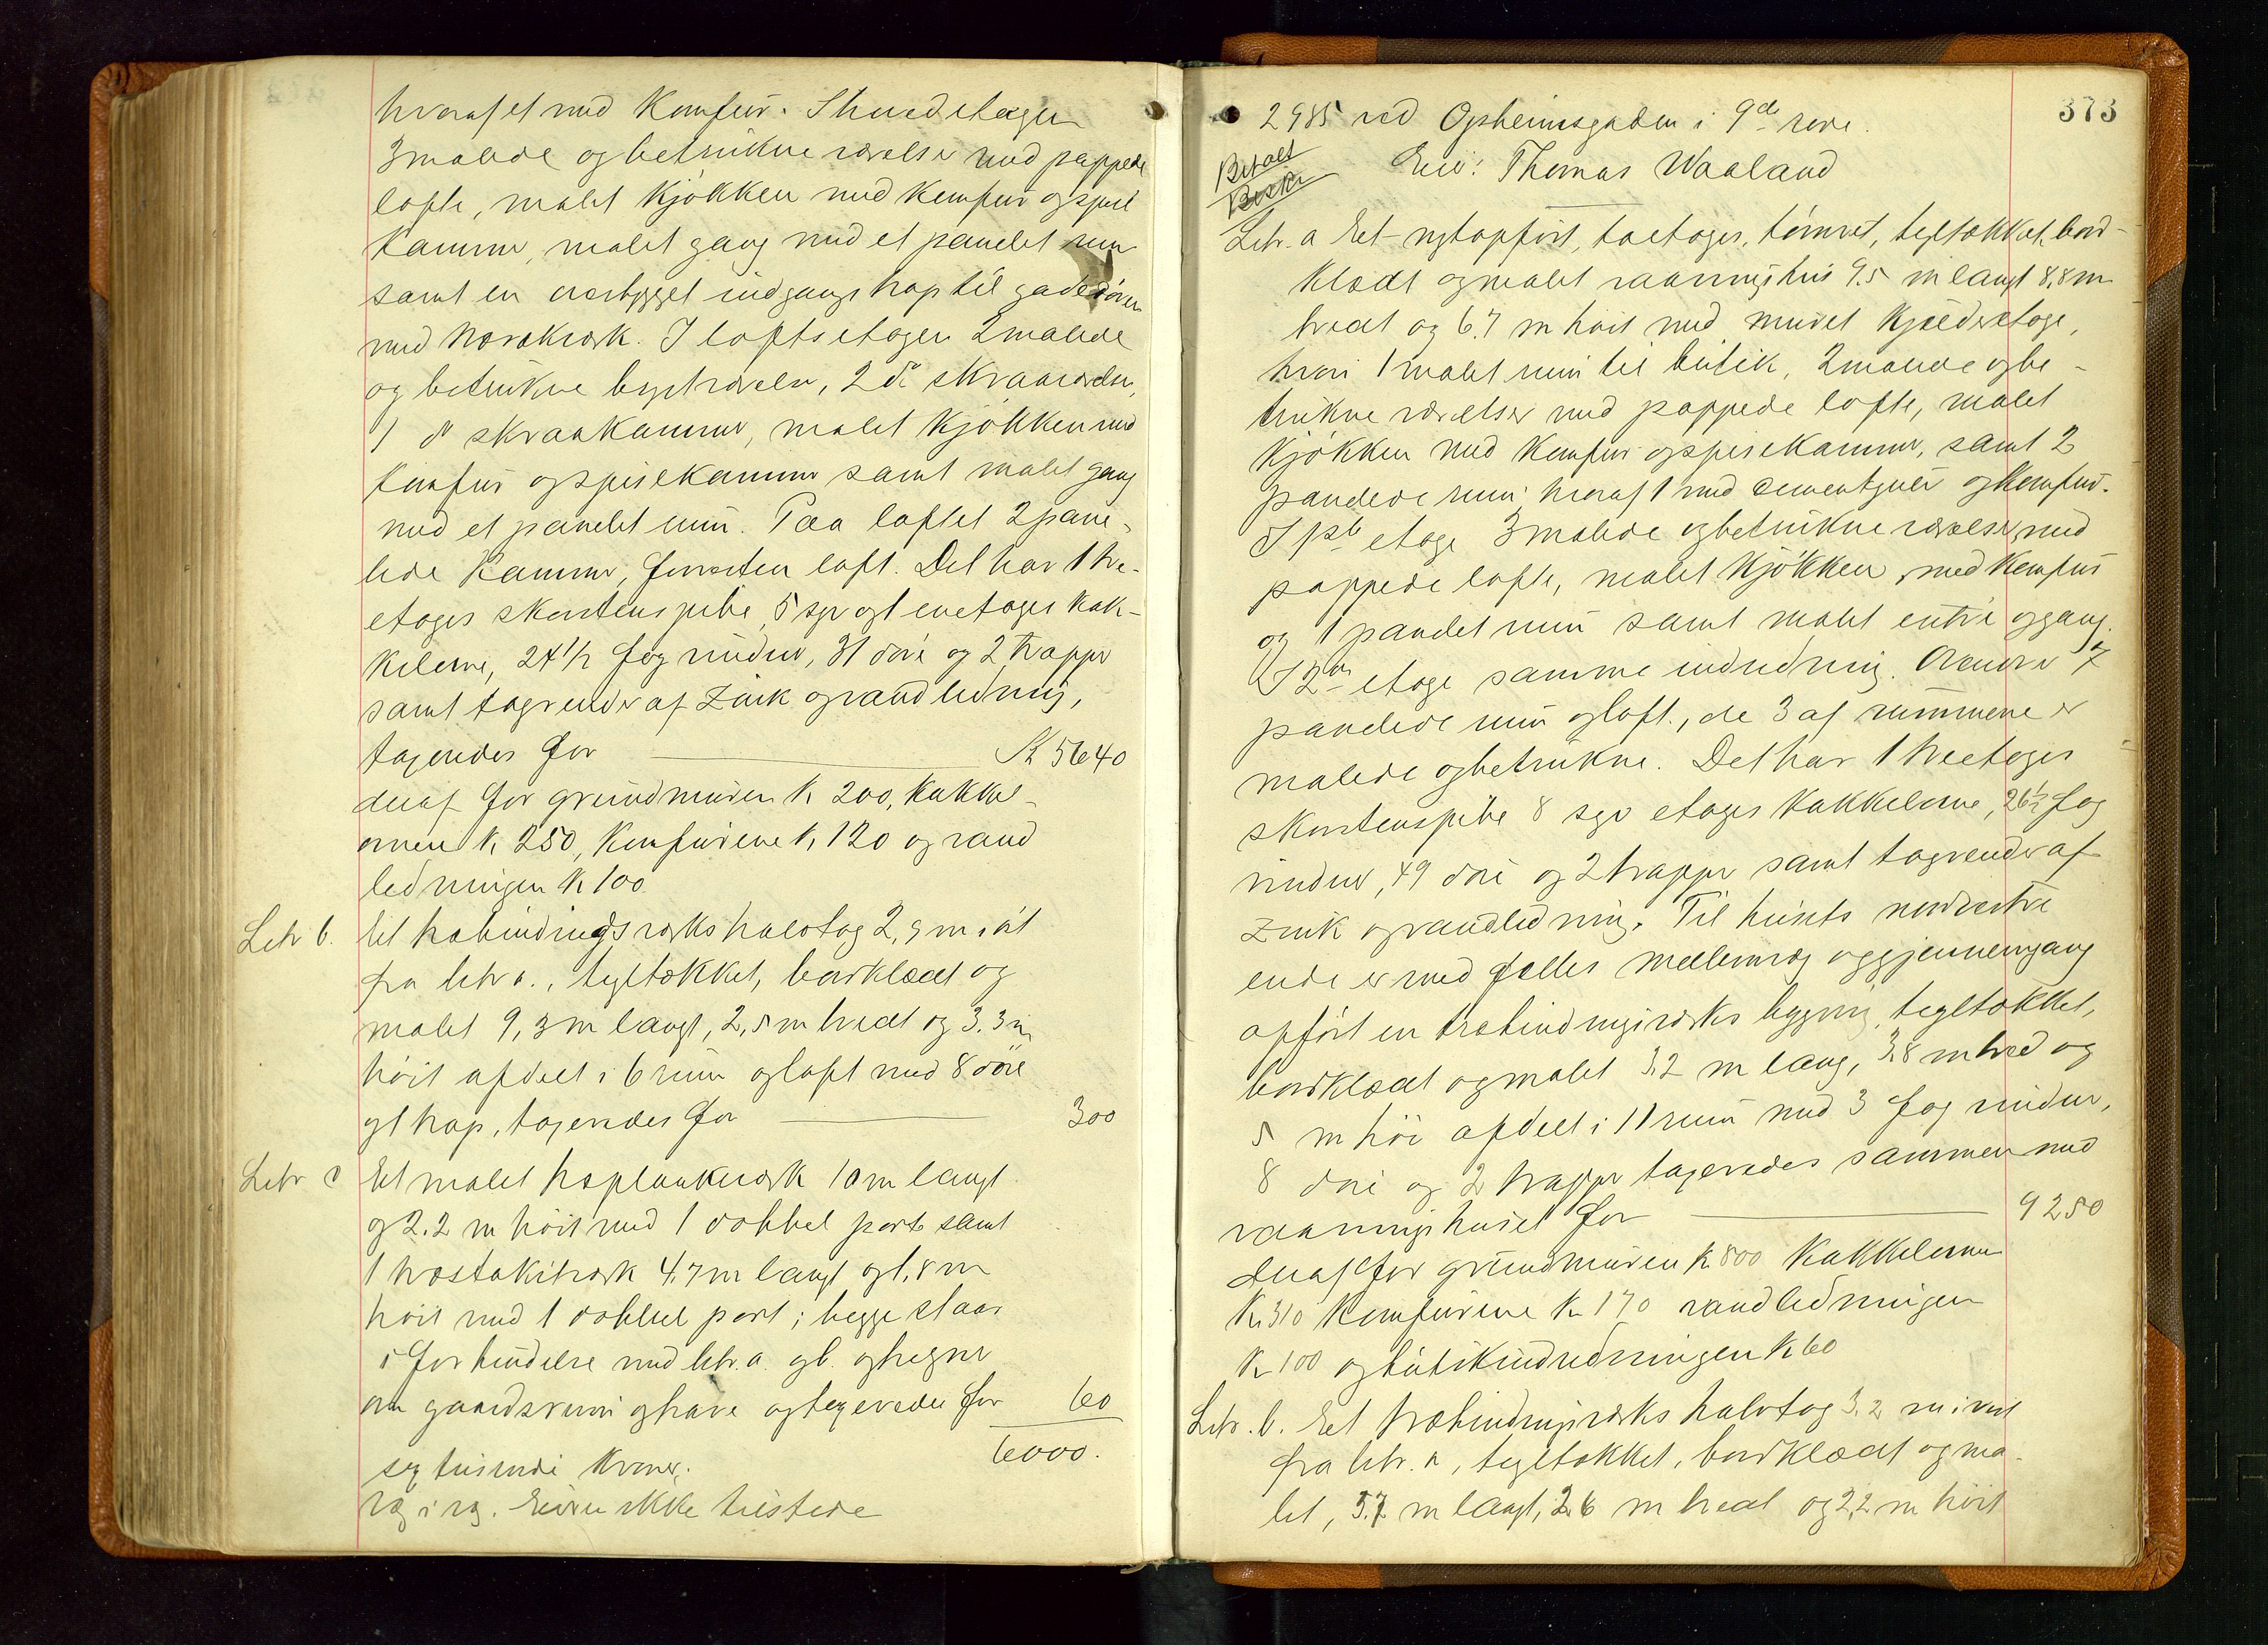 hvoraf et med Komfur. I hovedetagen
3 malede og betrukne værelser med pappede
lofte, malet Kjøkken med Komfur og spise
Kammer, malet gang med et panelet rum
samt en overbygget indgangstrap til gadedøren
med træverk. I loftsetagen 2 malede
og betrukne kvistværelser, 2 do skraaværelser,
1 do skraakammer, malet Kjøkken med
Komfur og spisekammer samt malet gang
med et panelet rum. Paa loftet 2 pane-
lede Kammer, forresten loft. Det har 1 tre-
etages skorstenspibe, 5 syv og 1 enetages kak-
kelovne, 24 1/2 fag vinduer, 31 døre og 2 trapper
samt tagrender af Zink og vandledning,
taxeredes for K 5640
deraf for grundmuren K 200, Kakkel-
ovnene K 250, Komfurene K 120 og vand
ledningen K 100.
Litr b. Et træbindingsverks halvtag 2,9 m i øst
fra litr a., tegltækket, bordklædt og
malet 9,3 m langt, 2,5 m bredt og 3.3 m
høit afdelt i 6 rum og loft med 8 døre
og 1 trap, taxeredes for 300
Litr c Et malet træplankeverk 10 m langt
og 2.2 m høit med 1 dobbel port samt
1 træstakitverk 4,7 m langt og 1,8 m
høit med 1 dobbel port; begge staar
i forbindelse med litr. a. og b. og hegner
om gaardsrum og have og taxeredes for 60
6000.
sex tusinde Kroner.
væg i væg. Eieren ikke tilstede
373
2985 ved Opheimsgaden i 9de rode.
Betalt
Beskr
Eier: Thomas Waaland
Litr. a Et nytopført, toetages, tømret, tegltækket, bord-
klædt og malet vaaningshus 9.5 m langt 8,8 m
bredt og 6.7 m høit med muret Kjælderetage,
hvori 1 malet rum til butik, 2 malede og be-
trukne værelser med pappede lofte, malet
Kjøkken med Komfur og spisekammer, samt 2
panelede rum hvoraf 1 med cementgulv og Komfur.
I 1ste etage 3 malede og betrukne værelser med
pappede lofte, malet Kjøkken med Komfur
og 1 panelet rum samt malet entre og gang.
I 2den etage samme indredning. Ovenover 7
panelede rum og loft, de 3 af rummene er
malede og betrukne. Det har 1 treetages
skorstenspibe 8 syv etages Kakkelovne, 26 1/2 fag
vinduer, 49 døre og 2 trapper samt tagrender af
Zink og vandledning. Til husets nordvestre
ende er med fælles mellemvæg og gjennemgang
opført en træbindingsverks bygning, tegltækket,
bordklædt og malet 3.2 m lang, 3.8 m bred og
5 m høi afdelt i 11 rum med 3 fag vinduer,
8 døre og 2 trapper taxeredes sammen med
vaaningshuset for 9250
deraf for grundmuren K 800 Kakkelovnene
K 310 Komfurene K 170 vandledningen
K 100 og butikindredningen K 60
Litr. b. Et træbindingsverks halvtag 3.2 m i vest
fra litr. a, tegltækket, bordklædt og ma-
let, 5.7 m langt, 2.6 m bredt og 2,2 m høit